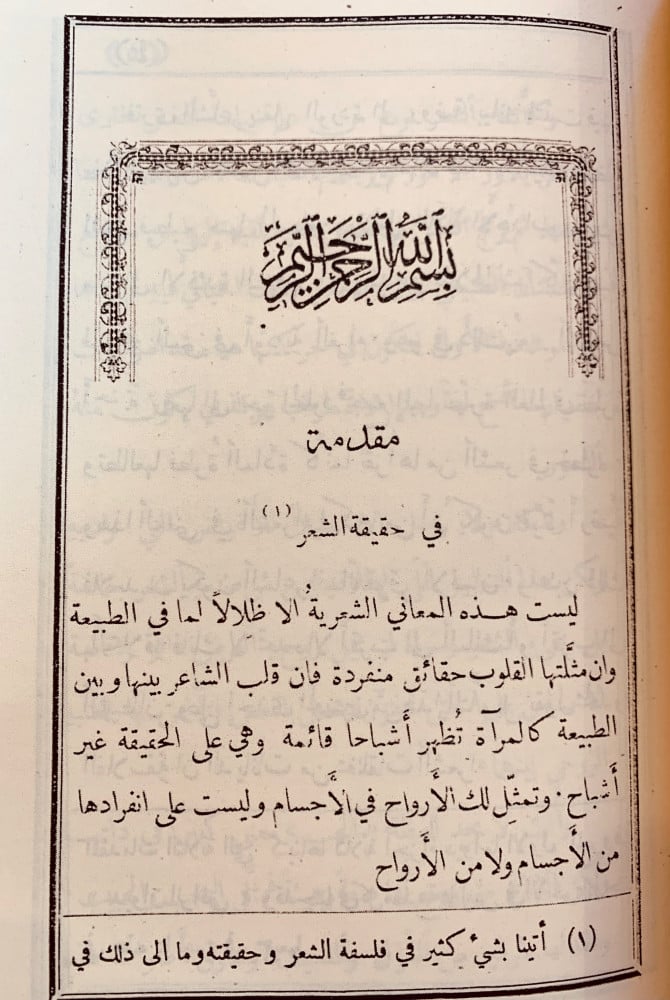 بسم الله الرحمن الرحيم
مقدمة
في حقيقة الشعر (١)
ليست هذه المعاني الشعريةُ الا ظلالاً لما في الطبيعة
وان مثلَّتها القلوب حقائق منفردة فان قلب الشاعر بينها وبين
الطبيعة كالمرآة تُظهر أشباحا قائمة وهي على الحقيقة غير
أشباح. وتمثِّل لك الأَرواح في الأَجسام وليست على انفرادها
من الأَجسام ولا من الأَرواح
(١) أتينا بشيء كثير في فلسفة الشعر وحقيقته وما الى ذلك في